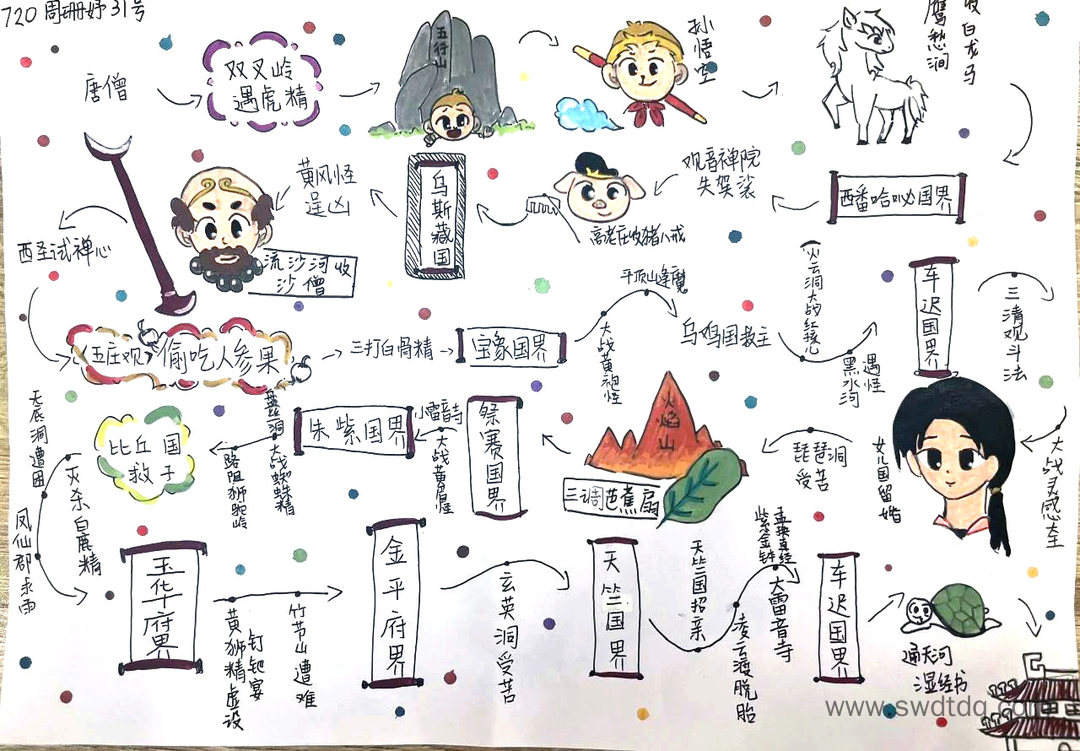 720 周珊妤 31号
唐僧
双叉岭
遇虎精
五行山
孙悟空
鹰愁涧
收白龙马
西番哈咇国界
观音禅院
失袈裟
高老庄收猪八戒
乌斯藏国
黄风怪
逞凶
流沙河收
沙僧
西圣试禅心
五庄观
偷吃人参果
三打白骨精
宝象国界
大战黄袍怪
平顶山逢魔
乌鸡国救主
火云洞大战红孩儿
黑水河
遇怪
车迟国界
三清观斗法
大战灵感大王
女儿国留婚
琵琶洞
受苦
火焰山
三调芭蕉扇
祭赛国界
小雷音寺
大战黄眉
朱紫国界
盘丝洞
大战蜘蛛精
路阻狮驼岭
比丘国
救子
灭杀白鹿精
无底洞遭困
凤仙郡求雨
玉华府界
黄狮精虚设
钉钯宴
竹节山遭难
金平府界
玄英洞受苦
天竺国界
天竺国招亲
凌云渡脱胎
大雷音寺
紫金钵
孟换真经
车迟国界
通天河
湿经书
www.swdtdq.com